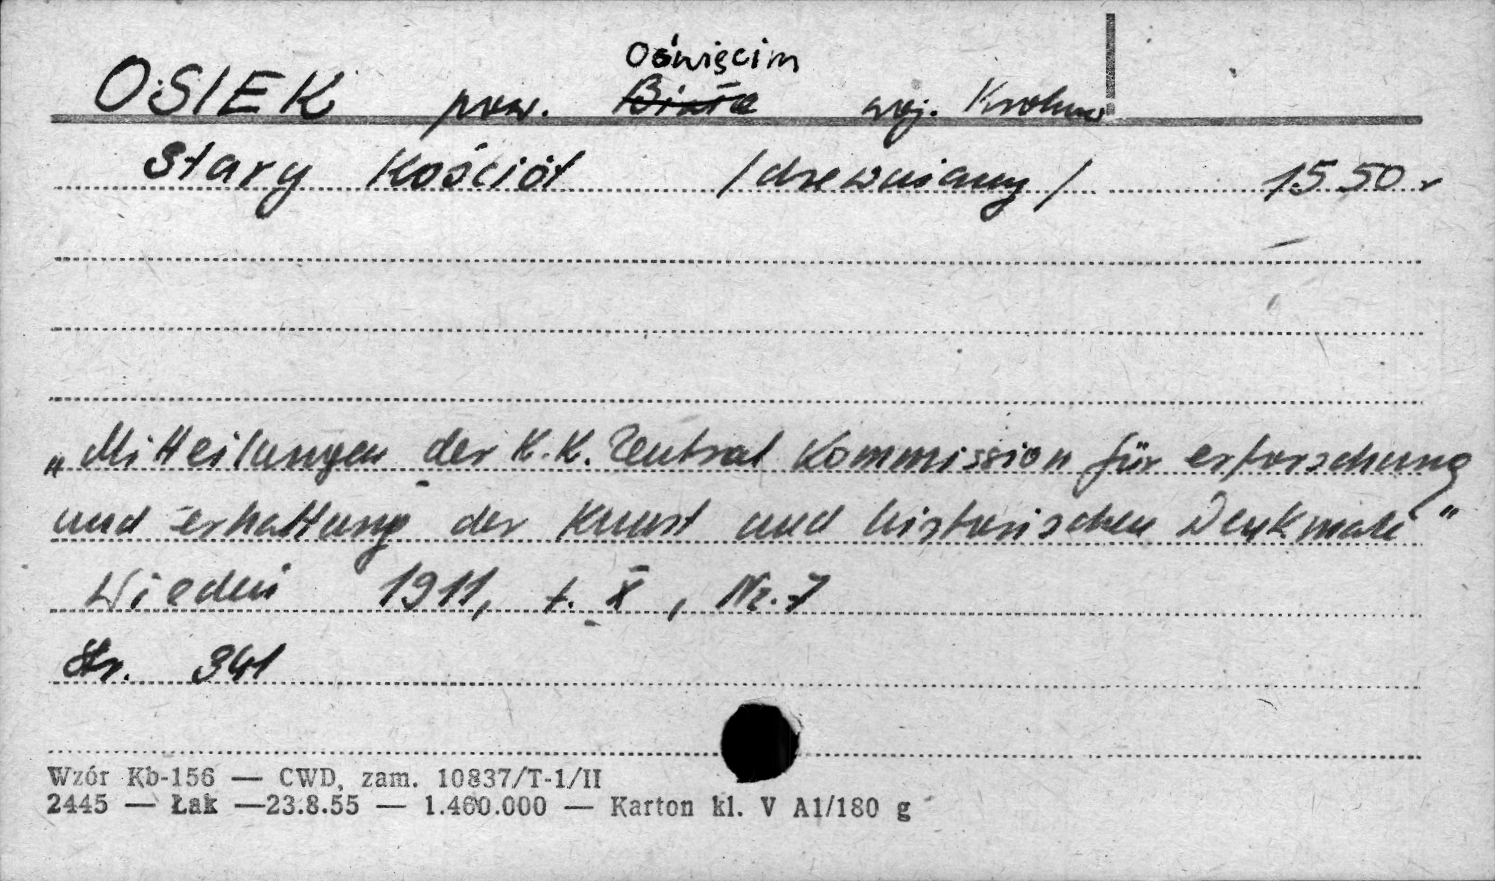 Oświęcim
OSIEK pow. Biała woj. Kraków
Stary Kościół /drewniany/ 1550 r
„Mitteilungen der K.K. Zentral Kommission für erforschung
und erhaltung der Kunst und historischen Denkmale"
Wiedeń 1911, t. X, Nr. 7
Str. 341
Wzór Kb-156 — CWD, zam. 10837/T-1/II
2445 — Łak —23.8.55 — 1.460.000 — Karton kl. V A1/180 g